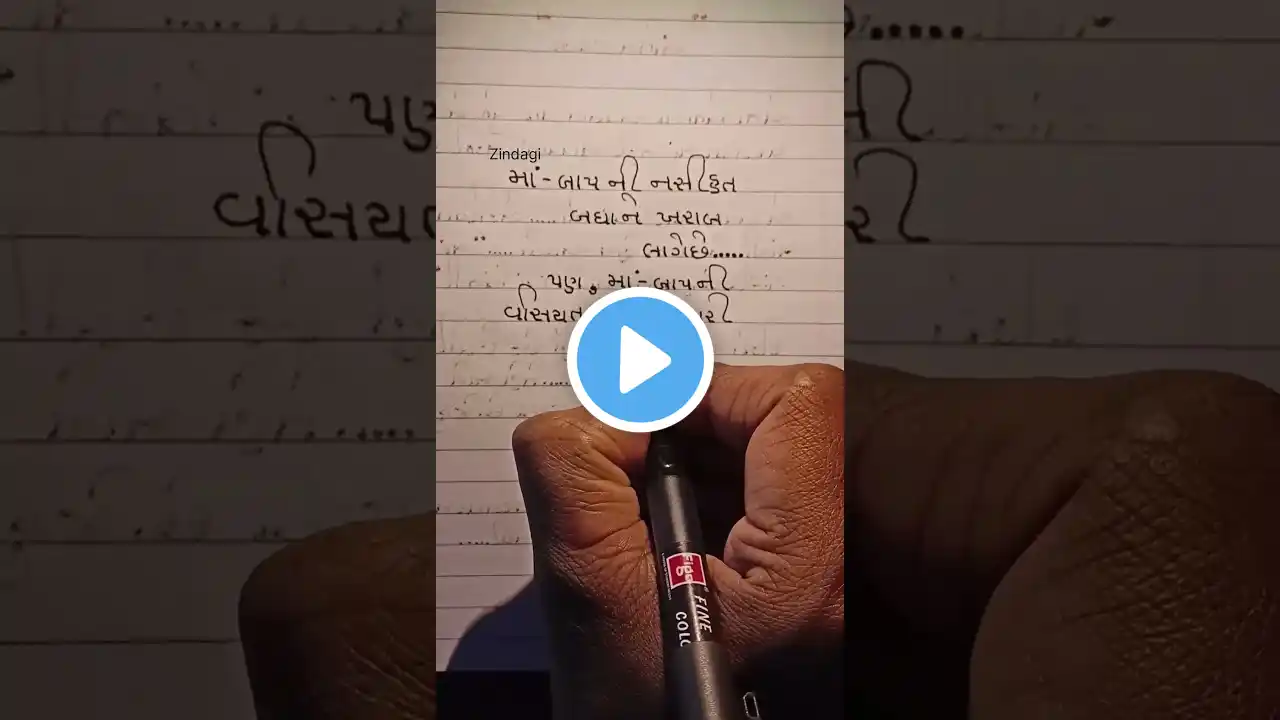 Zindagi
માં-બાપ ની નસીહત
બધાને ખરાબ
લાગેછે.....
પણ, માં-બાપની
વસિયત
FINE